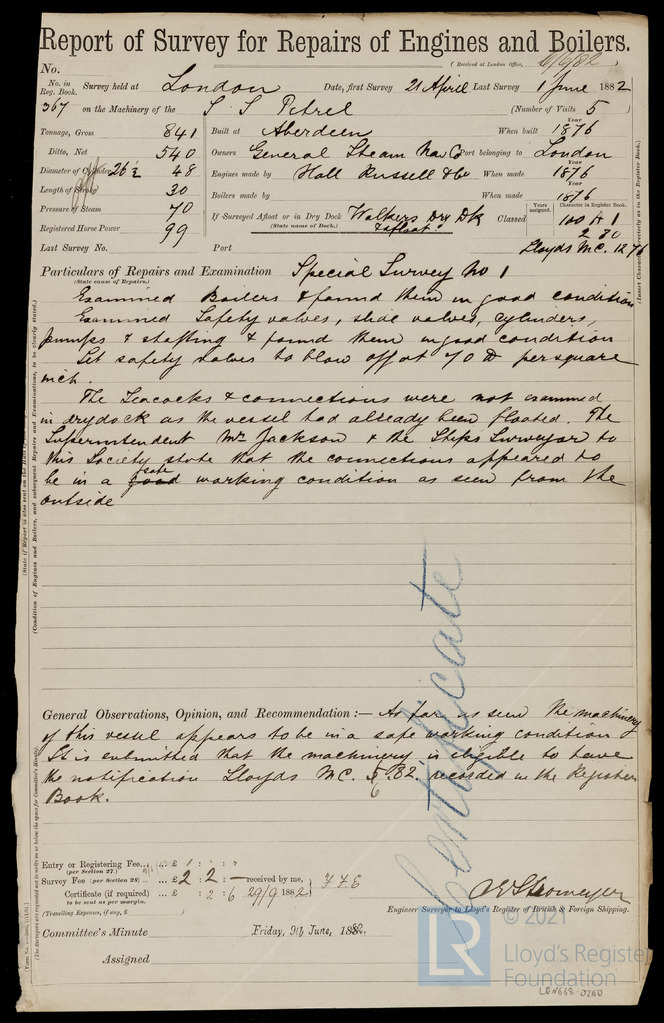 Report of Survey for Repairs of Engines and Boilers.
(Received at London Office, 6/9/82)
No.
No. in Reg. Book. Survey held at London Date, first Survey 21 April Last Survey 1 June 1882
367 on the Machinery of the S S Petrel (Number of Visits 5)
Tonnage, Gross 841 Built at Aberdeen When built Year 1876
Ditto, Net 540 Owners General Steam Nav Co Port belonging to London
Diameter of Cylinder 26½ 48 Engines made by Hall Russell & Co When made Year 1876
Length of Stroke 30 Boilers made by When made Year 1876
Pressure of Steam 70 If Surveyed Afloat or in Dry Dock Walkers Dry Dk & afloat Classed Years assigned. Character in Register Book. 100 A 1
(State name of Dock.)
Registered Horse Power 99 2 80
Last Survey No. Port Lloyds M.C. 12 76
Particulars of Repairs and Examination Special Survey No 1
(State cause of Repairs.)
Examined Boilers & found them in good condition
Examined Safety valves, slide valves, cylinders,
pumps & shafting & found them in good condition
Set safety valves to blow off at 70 lb per square
inch.
The Seacocks & connections were not examined
in drydock as the vessel had already been floated. The
Superintendent Mr Jackson & the Ships Surveyor to
this Society state that the connections appeared to
be in a good safe working condition as seen from the
outside
Certificate
General Observations, Opinion, and Recommendation :— As far as seen the machinery
of this vessel appears to be in a safe working condition
It is submitted that the machinery is eligible to have
the notification Lloyds MC. 6 82 recorded in the Register
Book.
Entry or Registering Fee... ... £ 1 : " : "
(per Section 27.)
Survey Fee (per Section 28) ... £ 2 : 2 : — received by me,
Certificate (if required) ... £ : 2 : 6 29/9 1882
to be sent as per margin.
(Travelling Expenses, if any, £ )
Engineer Surveyor to Lloyd's Register of British & Foreign Shipping.
Committee's Minute Friday, 9th June, 1882.
Assigned
© 2021
LR Lloyd's Register
Foundation
LDN668-0260
(Insert Character precisely as in the Register Book.)
(Condition of Engines and Boilers, and subsequent Repairs and Examinations, to be clearly stated.)